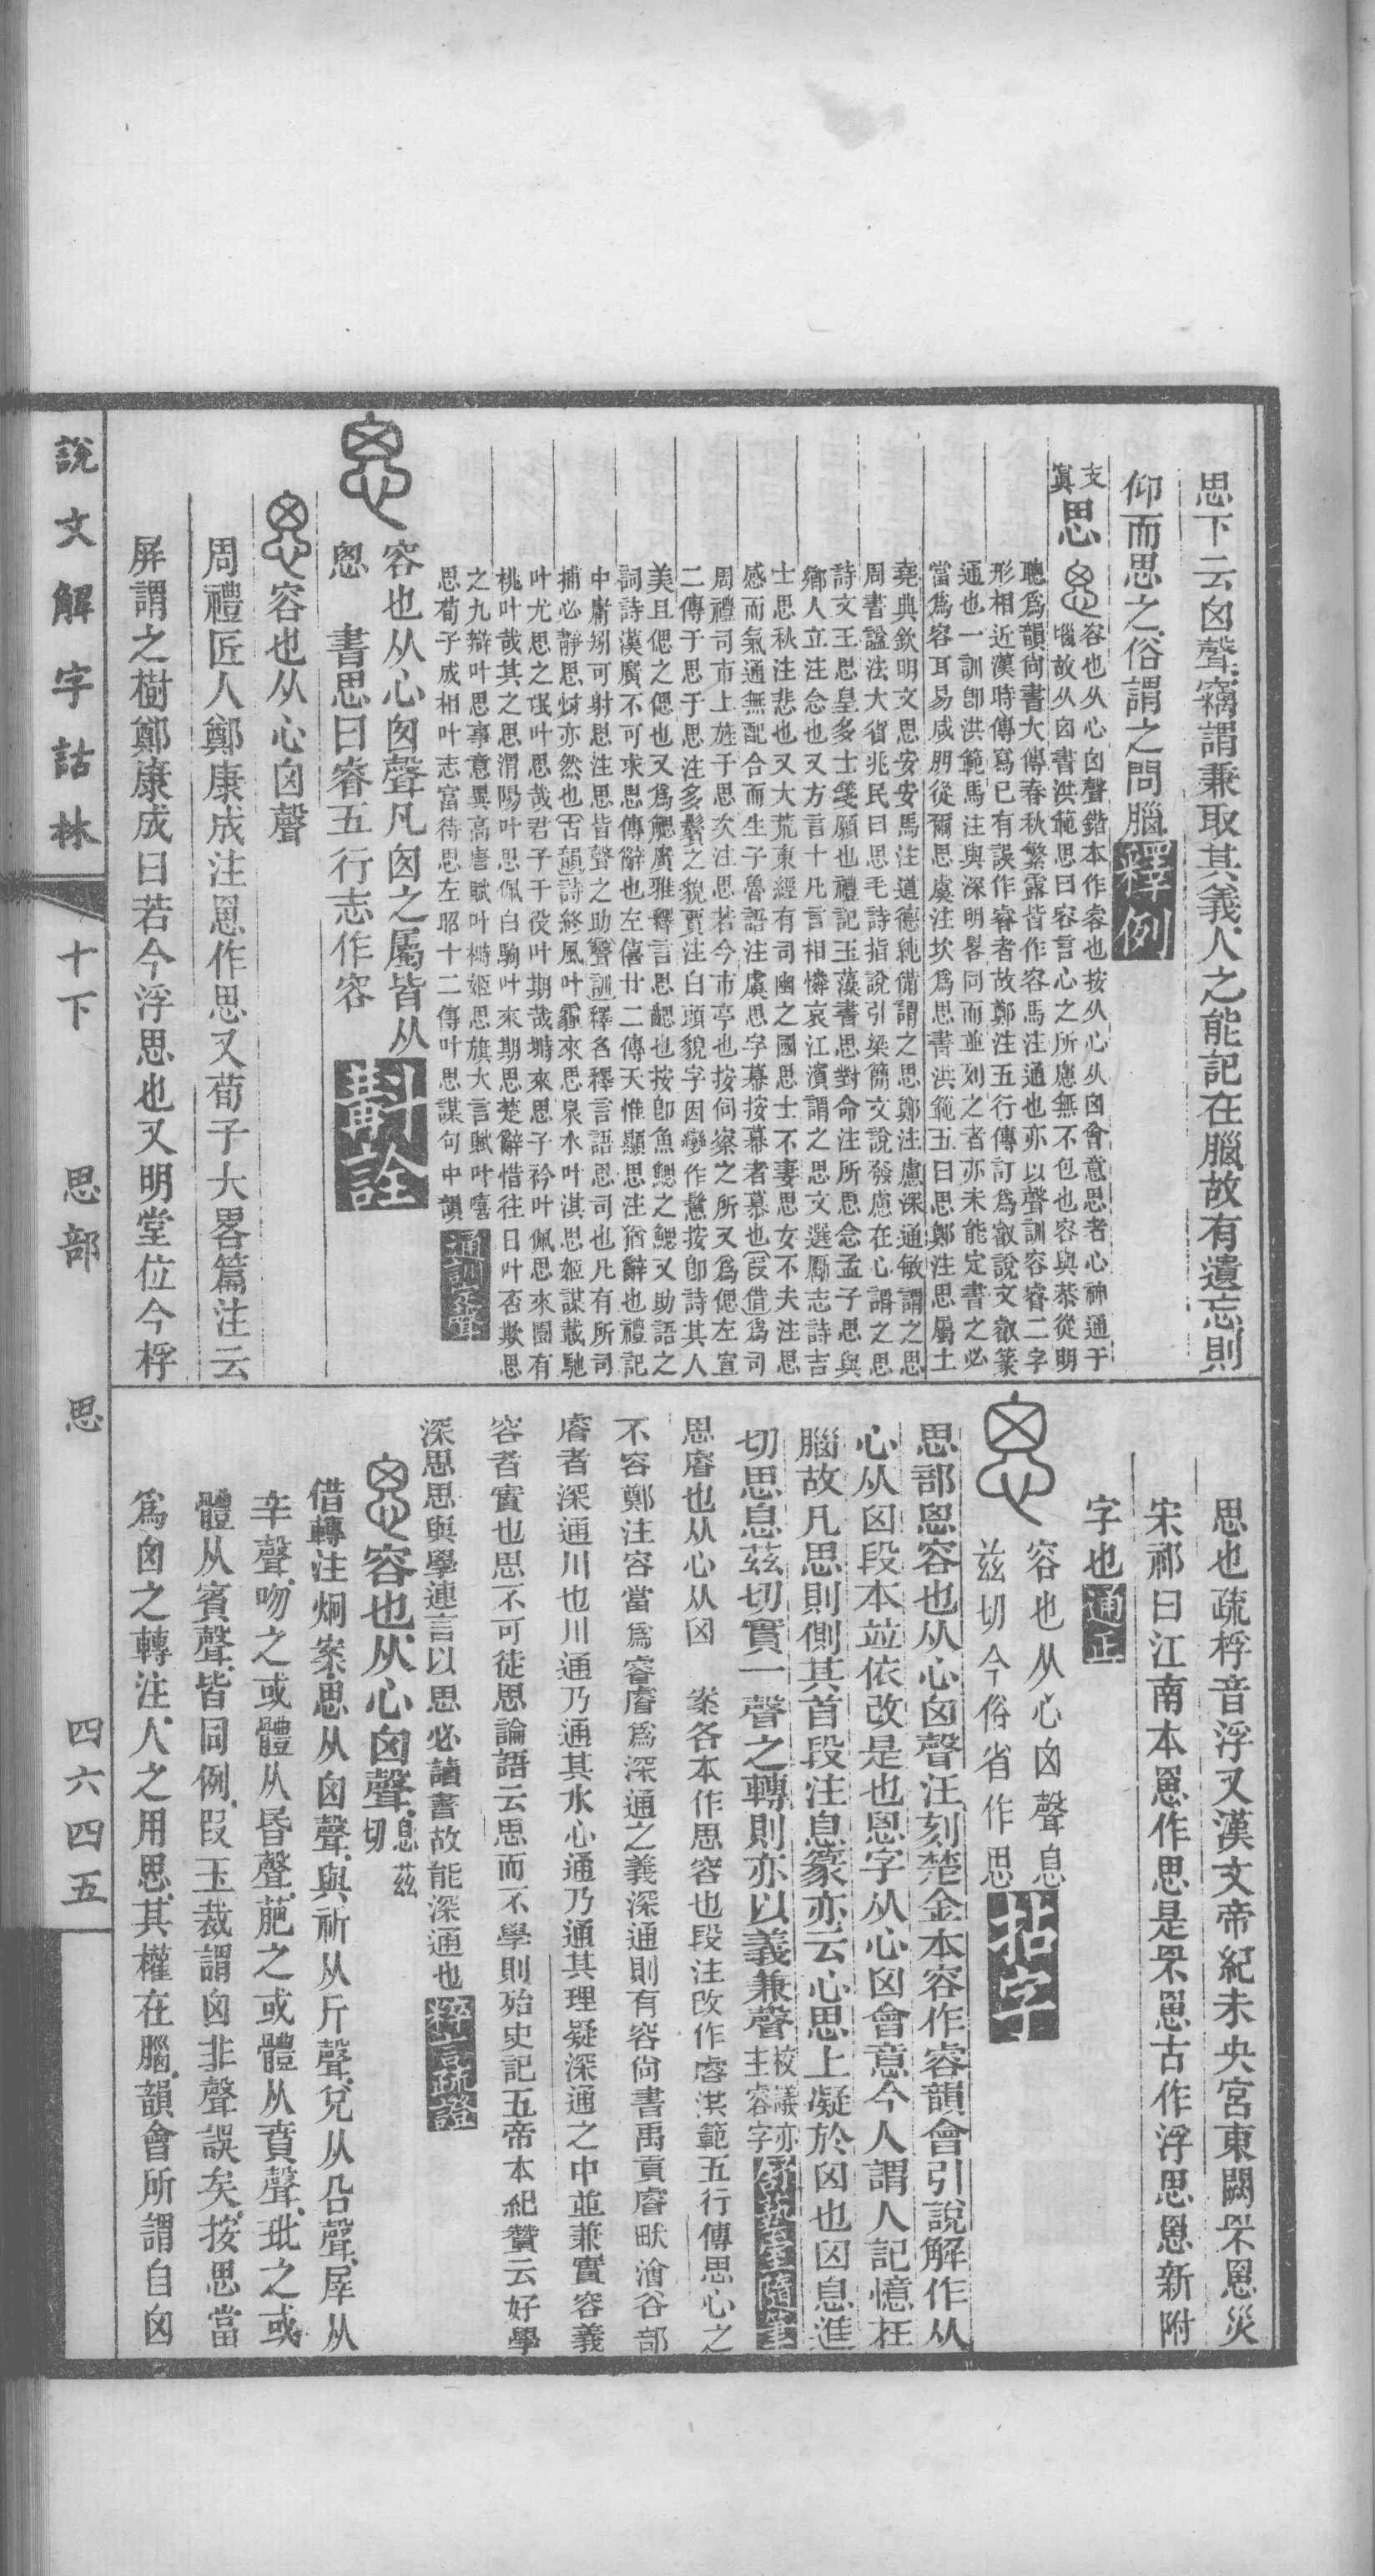 思下云囟聲竊謂兼取其義人之能記在腦故有遺忘則
仰而思之俗謂之問腦釋例
支寘思
容也从心囟聲鍇本作睿也按从心从囟會意思者心神通于
𦛁故从囟書洪範思曰容言心之所慮無不包也容與恭從明
聰為韻尚書大傳春秋繁露皆作容馬注通也亦以聲訓容睿二字
形相近漢時傳寫已有誤作睿者故鄭注五行傳訂為叡說文叡篆
通也一訓卽洪範馬注與深明畧同而並列之者亦未能定書之必
當為容耳易咸朋從爾思虞注坎為思書洪範五曰思鄭注思屬土
堯典欽明文思安安馬注道德純備謂之思鄭注慮深通敏謂之思
周書謚法大省兆民曰思毛詩指說引梁簡文說發慮在心謂之思
詩文王思皇多士箋願也禮記玉藻書思對命注所思念孟子思與
鄉人立注念也又方言十凡言相憐哀江濱謂之思文選勵志詩吉
士思秋注悲也又大荒東經有司幽之國思士不妻思女不夫注思
感而氣通無配合而生子魯語注虞思字幕按幕者慕也叚借為司
周禮司市上旌于思次注思若今市亭也按伺察之所又為偲左宣
二傳于思于思注多鬚之貌賈注白頭貌字因變作鬛按卽詩其人
美且偲之偲也又為䚡廣雅釋言思䚡也按卽魚鰓之鰓又助語之
詞詩漢廣不可求思傳辭也左僖廿二傳天惟顯思注猶辭也禮記
中庸矧可射思注思皆聲之助聲訓釋名釋言語思司也凡有所司
捕必靜思忖亦然也古韻詩終風叶霾來思泉水叶淇思姬謀載馳
叶尤思之氓叶思哉君子于役叶期哉塒來思子衿叶佩思來園有
桃叶哉其之思渭陽叶思佩白駒叶來期思楚辭惜往日叶否欺思
之九辯叶思事意異高唐賦叶㭰姬思旗大言賦叶嘻
思荀子成相叶志富待思左昭十二傳叶思謀句中韻通訓定聲
容也从心囟聲凡囟之屬皆从
恖 書思曰睿五行志作容斠詮
容也从心囟聲
周禮匠人鄭康成注恖作思又荀子大畧篇注云
屏謂之樹鄭康成曰若今浮思也又明堂位今桴
思也疏桴音浮又漢文帝紀未央宮東闕罘恖災
宋祁曰江南本恖作思是罘恖古作浮思恖新附
字也通正
容也从心囟聲息
兹切今俗省作思祛字
思部恖容也从心囟聲汪刻楚金本容作睿韻會引說解作从
心从囟段本竝依改是也恖字从心囟會意今人謂人記憶在
腦故凡思則側其首段注息篆亦云心思上凝於囟也囟息進
切思息茲切實一聲之轉則亦以義兼聲校議亦主容字舒蓺室隨筆
思䜭也从心从囟 案各本作思容也段注改作䜭洪範五行傳思心之
不容鄭注容當爲睿䜭爲深通之義深通則有容尚書禹貢䜭畎澮谷部
䜭者深通川也川通乃通其水心通乃通其理疑深通之中並兼實容義
容者實也思不可徒思論語云思而不學則殆史記五帝本紀贊云好學
深思思與學連言以思必讀書故能深通也釋言疏證
容也从心囟聲息茲切
借轉注炯案思从囟聲與祈从斤聲兌从㕣聲犀从
辛聲吻之或體从昏聲萉之或體从賁聲玭之或
體从賓聲皆同例段玉裁謂囟非聲誤矣按思當
爲囟之轉注人之用思其權在腦韻會所謂自囟
說文解字詁林
十下 思部 思
四六四五